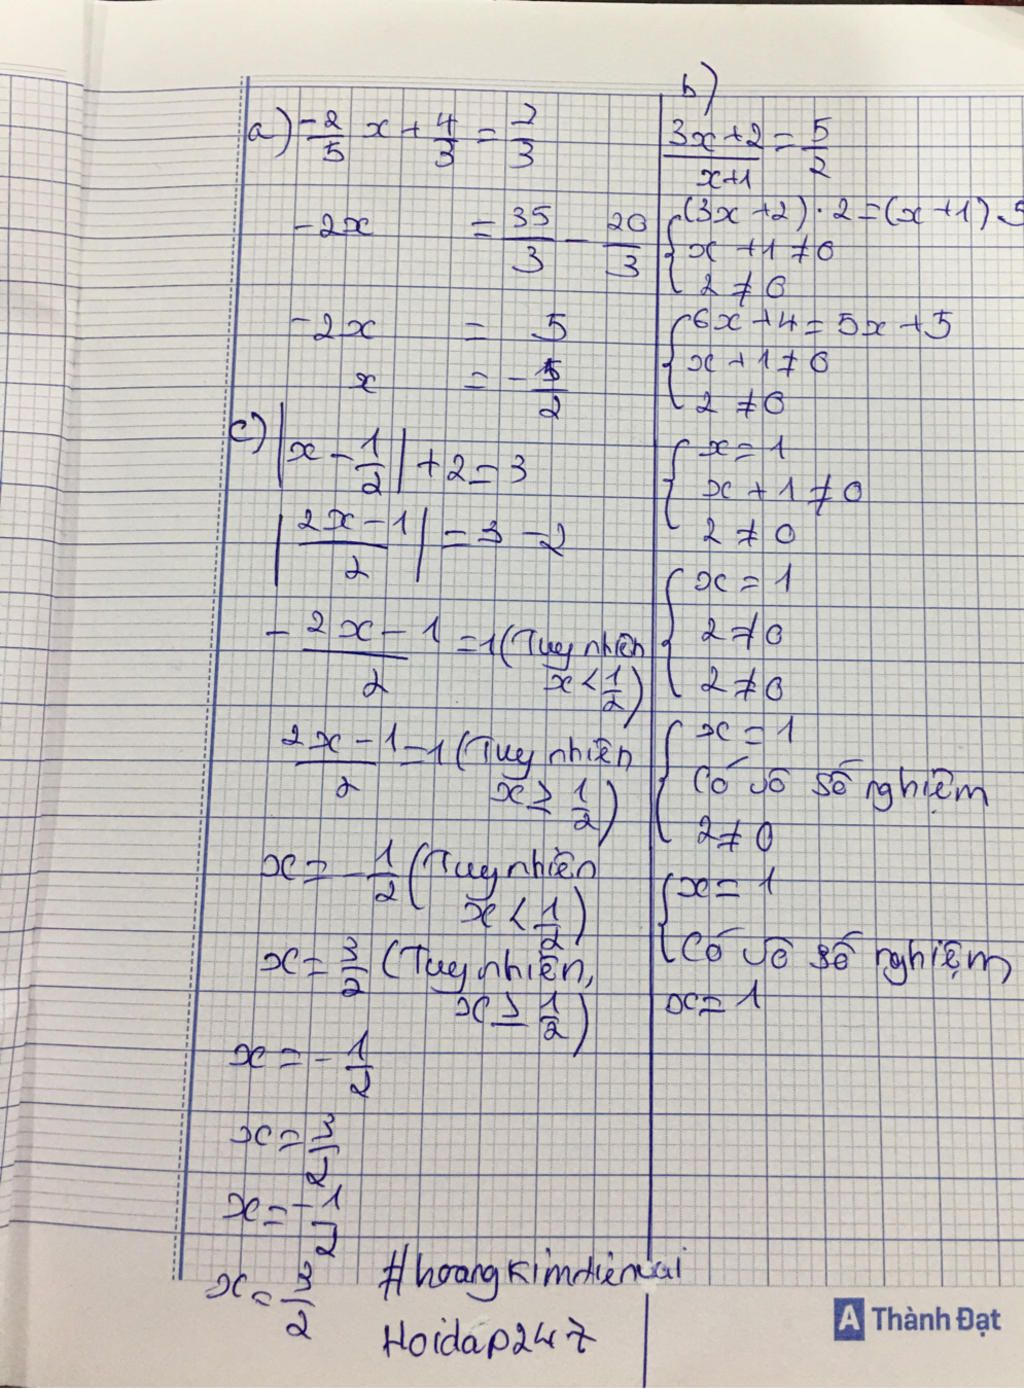 a) -2/5 x + 4/3 = 7/3
-2x = 35/3 - 20/3
-2x = 5
x = -5/2
c) |x - 1/2| + 2 = 3
|2x - 1/2| = 3 - 2
- 2x - 1/2 = 1 (Tuy nhiên
x < 1/2)
2x - 1/2 = 1 (Tuy nhiên
x ≥ 1/2)
x = -1/2 (Tuy nhiên
x < 1/2)
x = 3/2 (Tuy nhiên,
x ≥ 1/2)
x = -1/2
x = 3/2
x = -1/2
x = 3/2
b)
3x+2/x+1 = 5/2
{(3x+2)·2=(x+1)5
x+1≠0
2≠0
{6x+4=5x+5
x+1≠0
2≠0
{x=1
x+1≠0
2≠0
{x=1
2≠0
2≠0
{x=1
Có vô số nghiệm
2≠0
{x=1
Có vô số nghiệm
x=1
Hoidap247
A Thành Đạt